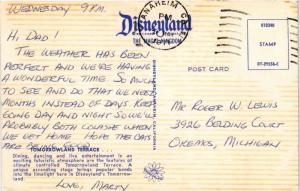 WEDNESDAY 9 P.M.
HI DAD!
THE WEATHER HAS BEEN
PERFECT AND WE'RE HAVING
A WONDERFUL TIME. SO MUCH
TO SEE AND DO THAT WE NEED
MONTHS INSTEAD OF DAYS. KEEP
GOING DAY AND NIGHT SO WE'LL
PROBABLY BOTH COLLAPSE WHEN
WE GET HOME. HOPE THE CATS
ARE BEING GOOD.
TOMORROWLAND TERRACE . . .
Dining, dancing and live entertainment in an
exciting futuristic atmosphere are the features of
climate controlled Tomorrowland Terrace. A
unique ascending stage brings popular bands
into the limelight here in Disneyland's Tomorrow-
land.
LOVE, MARTY
Disneyland
THE MAGIC KINGDOM
ANAHEIM
PM
POST CARD
STAMP
MR ROGER W. LEWIS
3926 BELDING COURT
OKEMOS, MICHIGAN